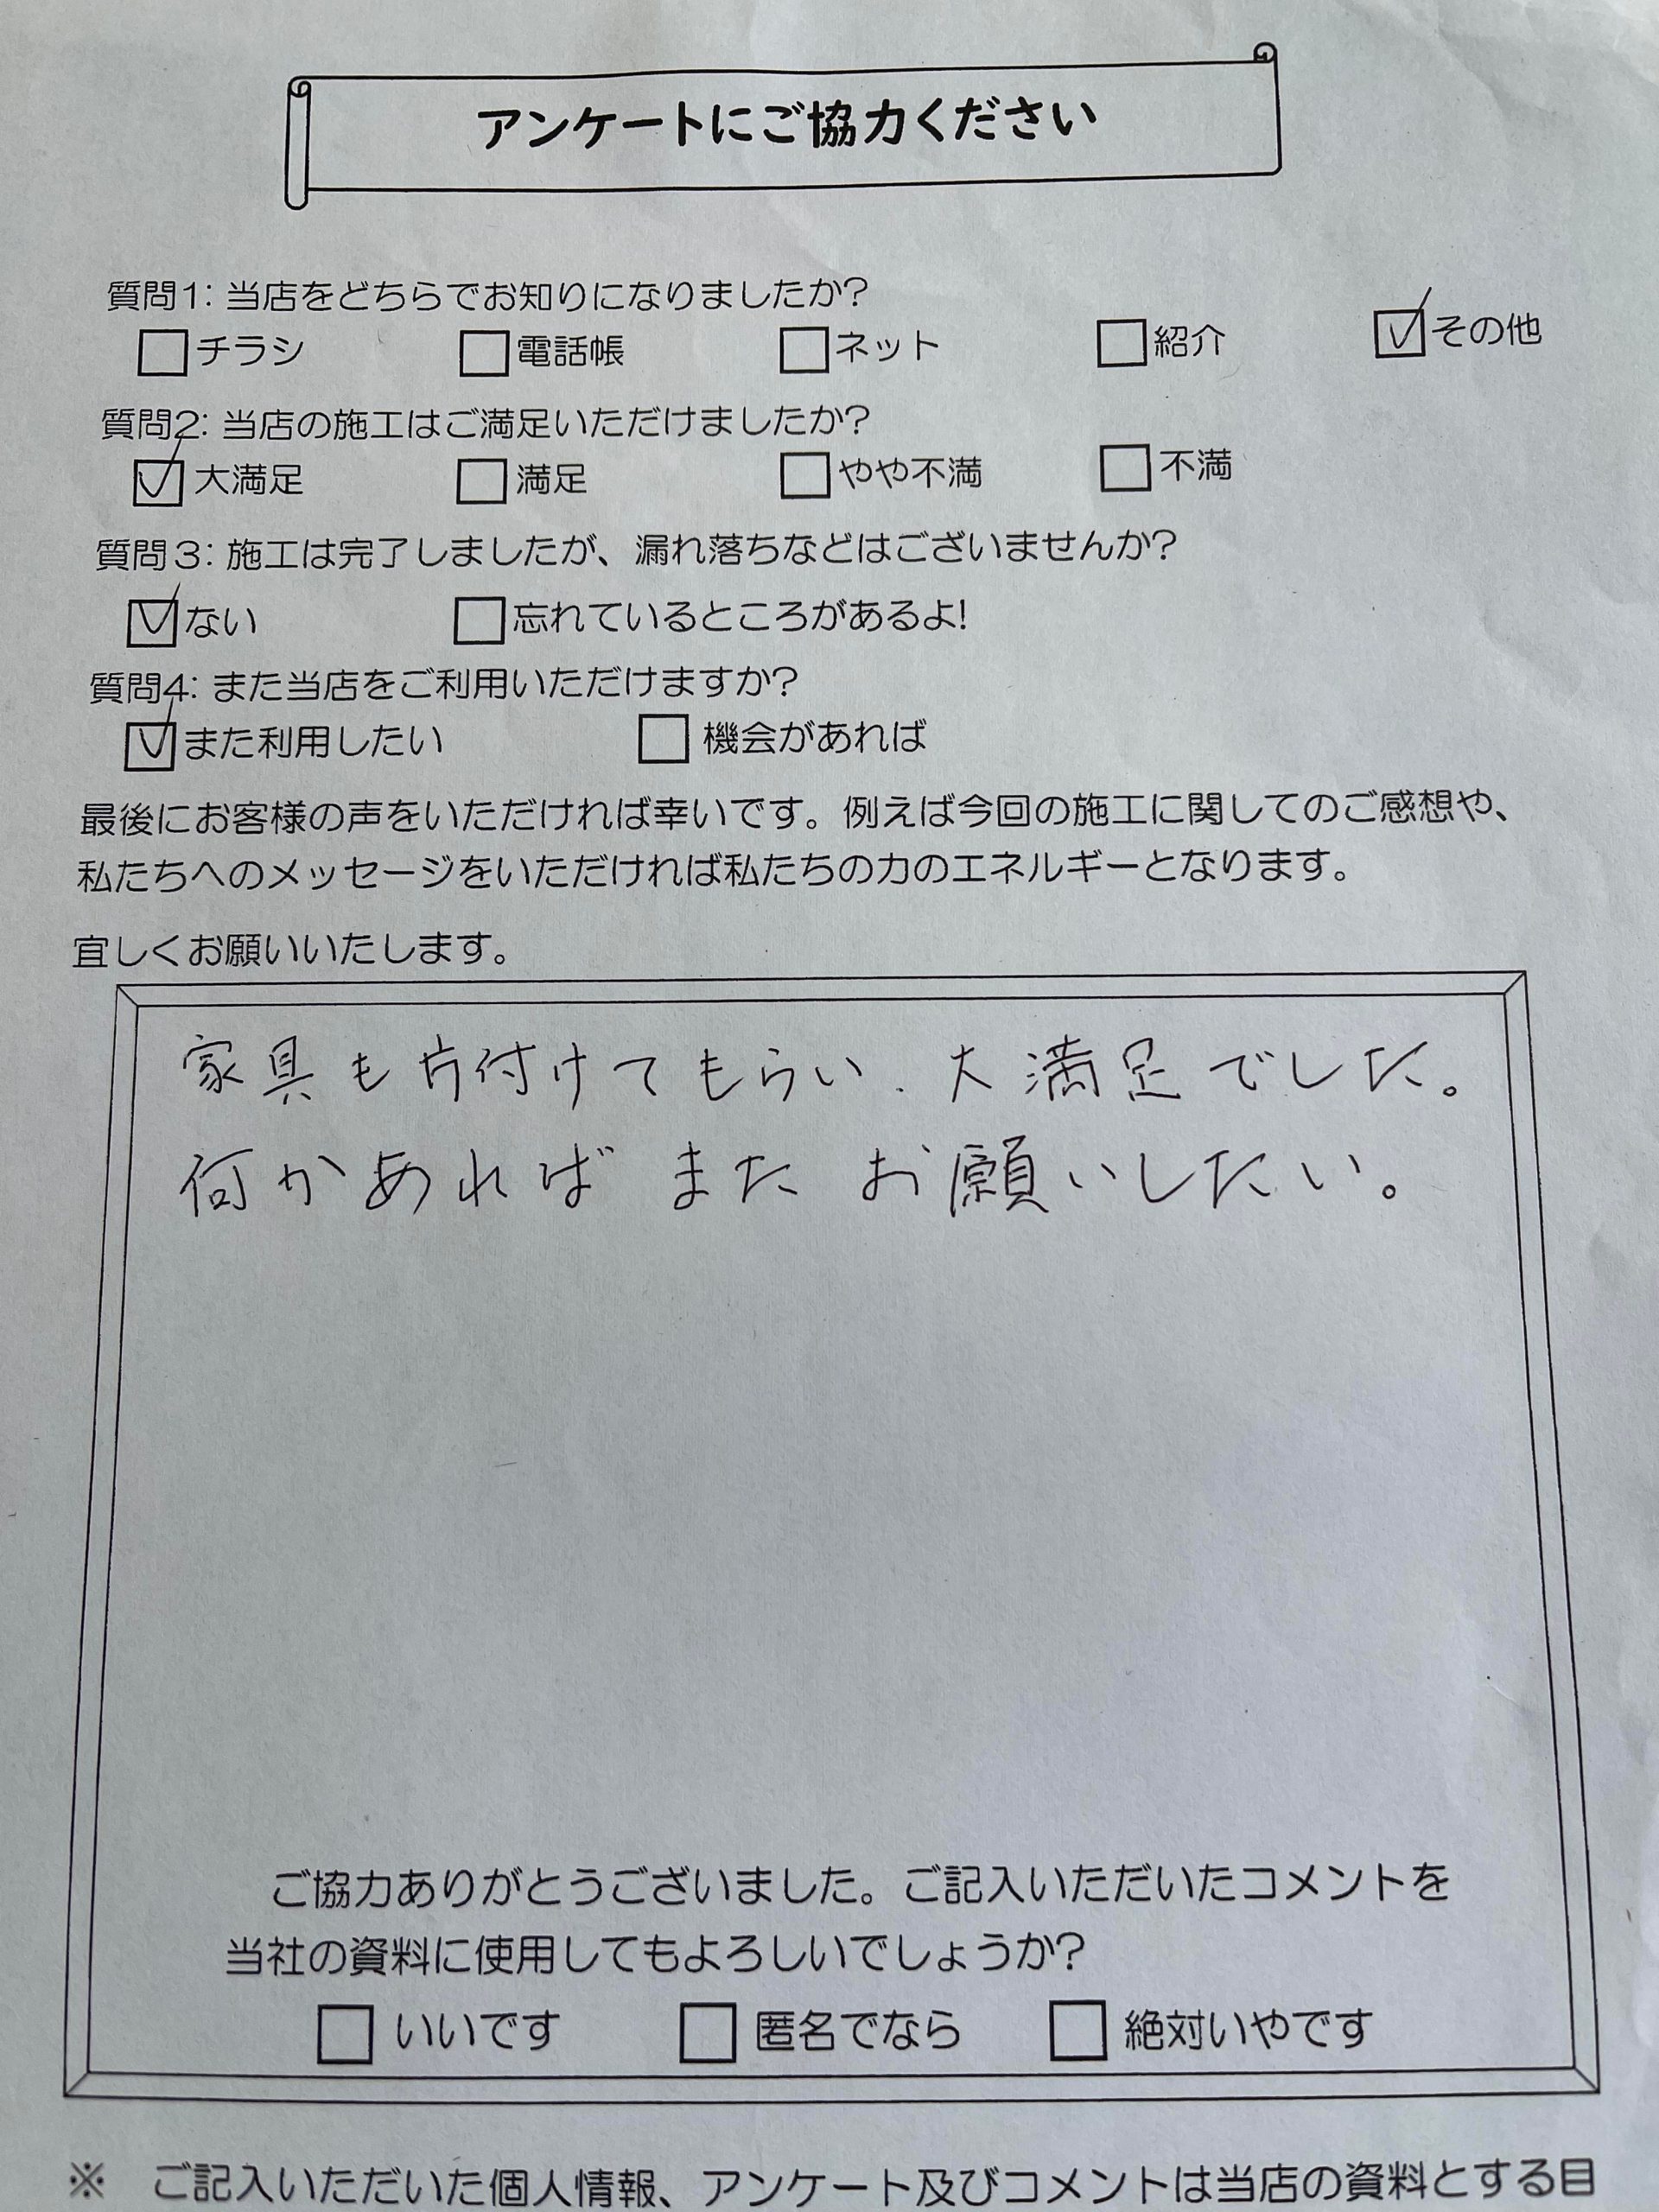 アンケートにご協力ください
質問1: 当店をどちらでお知りになりましたか?
□チラシ □電話帳 □ネット □紹介 ☑その他
質問2: 当店の施工はご満足いただけましたか?
☑大満足 □満足 □やや不満 □不満
質問3: 施工は完了しましたが、漏れ落ちなどはございませんか?
☑ない □忘れているところがあるよ!
質問4: また当店をご利用いただけますか?
☑また利用したい □機会があれば
最後にお客様の声をいただければ幸いです。例えば今回の施工に関してのご感想や、
私たちへのメッセージをいただければ私たちの力のエネルギーとなります。
宜しくお願いいたします。
家具も片付けてもらい、大満足でした。
何かあれば また お願いしたい。
ご協力ありがとうございました。ご記入いただいたコメントを
当社の資料に使用してもよろしいでしょうか?
□ いいです □ 匿名でなら □ 絶対いやです
※ ご記入いただいた個人情報、アンケート及びコメントは当店の資料とする目